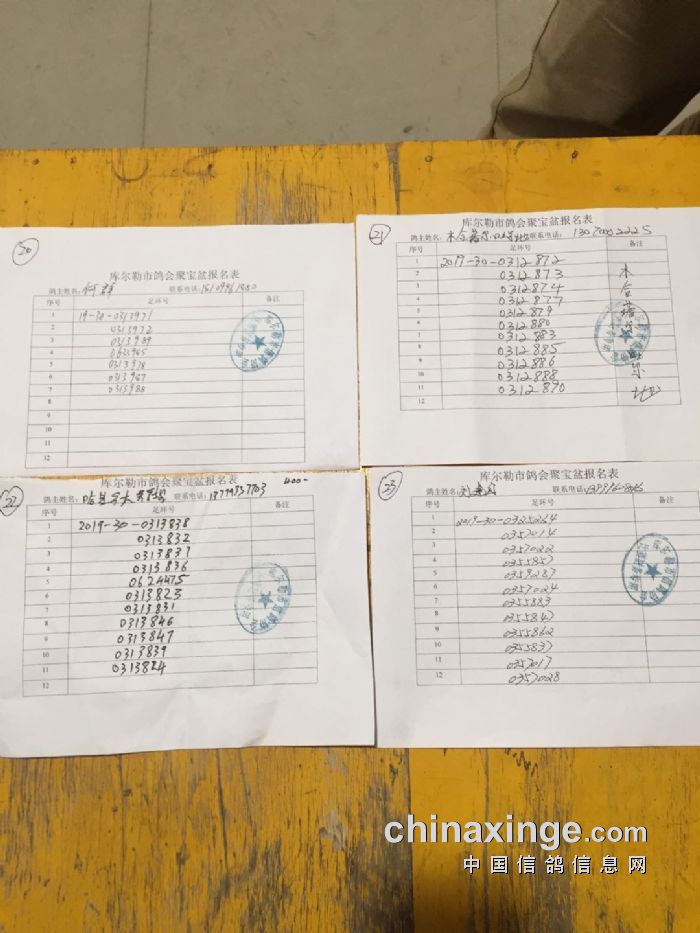 20
库尔勒市鸽会聚宝盆报名表
鸽主姓名: 联系电话:
序号 足环号 备注
1 19-30-0313971
2 0313972
3 0313989
4
5 0313978
6 0313967
7 0313988
8
9
10
11
12
21
库尔勒市鸽会聚宝盆报名表
鸽主姓名: 木合塔尔 联系电话:
序号 足环号 备注
1 2019-30-0312872
2 0312873 木
3 0312874 合
4 0312877 塔
5 0312879 尔
6 0312880
7 0312883
8 0312885
9 0312886
10 0312888
11 0312890
12
22
库尔勒市鸽会聚宝盆报名表 400-
鸽主姓名: 联系电话: 13779937703
序号 足环号 备注
1 2019-30-0313838
2 0313832
3 0313837
4 0313836
5 0624475
6 0313823
7 0313831
8 0313846
9 0313847
10 0313839
11 0313824
12
23
库尔勒市鸽会聚宝盆报名表
鸽主姓名: 联系电话:
序号 足环号 备注
1 2019-30-0325224
2 0357014
3 0357022
4 0355857
5 0359287
6 0357024
7 0355883
8 0355847
9 0355862
10 0355837
11 0357017
12 0357028
chinaxinge.com
中国信鸽信息网